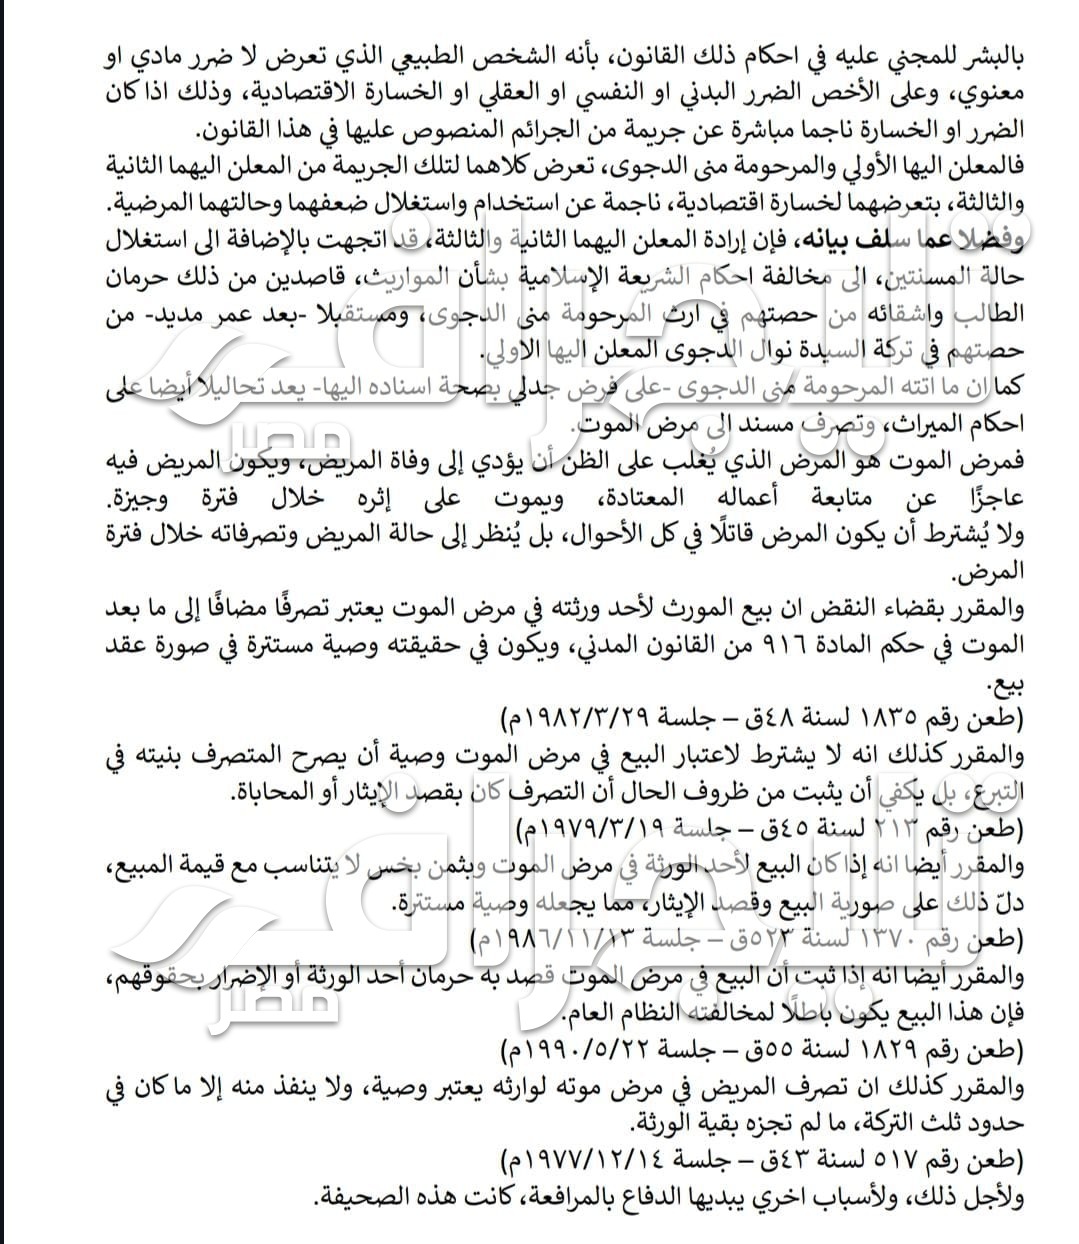 بالبشر للمجني عليه في احكام ذلك القانون، بأنه الشخص الطبيعي الذي تعرض لا ضرر مادي او
معنوي، وعلى الأخص الضرر البدني او النفسي او العقلي او الخسارة الاقتصادية، وذلك اذا كان
الضرر او الخسارة ناجما مباشرة عن جريمة من الجرائم المنصوص عليها في هذا القانون.
فالمعلن اليها الأولي والمرحومة منى الدجوى، تعرض كلاهما لتلك الجريمة من المعلن اليهما الثانية
والثالثة، بتعرضهما لخسارة اقتصادية، ناجمة عن استخدام واستغلال ضعفهما وحالتهما المرضية.
وفضلا عما سلف بيانه، فإن إرادة المعلن اليهما الثانية والثالثة، قد اتجهت بالإضافة الى استغلال
حالة المسنتين، الى مخالفة احكام الشريعة الإسلامية بشأن المواريث، قاصدين من ذلك حرمان
الطالب واشقائه من حصتهم في ارث المرحومة منى الدجوى، ومستقبلا -بعد عمر مديد- من
حصتهم في تركة السيدة نوال الدجوى المعلن اليها الاولي.
كما ان ما اتته المرحومة منى الدجوى -على فرض جدلي بصحة اسناده اليها- يعد تحاليلا أيضا على
احكام الميراث، وتصرف مسند الى مرض الموت.
فمرض الموت هو المرض الذي يُغلب على الظن أن يؤدي إلى وفاة المريض، ويكون المريض فيه
عاجزًا عن متابعة أعماله المعتادة، ويموت على إثره خلال فترة وجيزة.
ولا يُشترط أن يكون المرض قاتلًا في كل الأحوال، بل يُنظر إلى حالة المريض وتصرفاته خلال فترة
المرض.
والمقرر بقضاء النقض ان بيع المورث لأحد ورثته في مرض الموت يعتبر تصرفًا مضافًا إلى ما بعد
الموت في حكم المادة ٩١٦ من القانون المدني، ويكون في حقيقته وصية مستترة في صورة عقد
بيع.
(طعن رقم ١٨٣٥ لسنة ٤٨ق – جلسة ١٩٨٢/٣/٢٩م)
والمقرر كذلك انه لا يشترط لاعتبار البيع في مرض الموت وصية أن يصرح المتصرف بنيته في
التبرع، بل يكفي أن يثبت من ظروف الحال أن التصرف كان بقصد الإيثار أو المحاباة.
(طعن رقم ٢١٣ لسنة ٤٥ق – جلسة ١٩٧٩/٣/١٩م)
والمقرر أيضا انه إذا كان البيع لأحد الورثة في مرض الموت وبثمن بخس لا يتناسب مع قيمة المبيع،
دلّ ذلك على صورية البيع وقصد الإيثار، مما يجعله وصية مستترة.
(طعن رقم ١٣٧٠ لسنة ٥٢٣ق – جلسة ١٩٨٦/١١/١٣م)
والمقرر أيضا انه إذا ثبت أن البيع في مرض الموت قصد به حرمان أحد الورثة أو الإضرار بحقوقهم،
فإن هذا البيع يكون باطلًا لمخالفته النظام العام.
(طعن رقم ١٨٢٩ لسنة ٥٥ق – جلسة ١٩٩٠/٥/٢٢م)
والمقرر كذلك ان تصرف المريض في مرض موته لوارثه يعتبر وصية، ولا ينفذ منه إلا ما كان في
حدود ثلث التركة، ما لم تجزه بقية الورثة.
(طعن رقم ٥١٧ لسنة ٤٣ق – جلسة ١٩٧٧/١٢/١٤م)
ولأجل ذلك، ولأسباب اخري يبديها الدفاع بالمرافعة، كانت هذه الصحيفة.
تليجراف
مصر
تليجراف
مصر